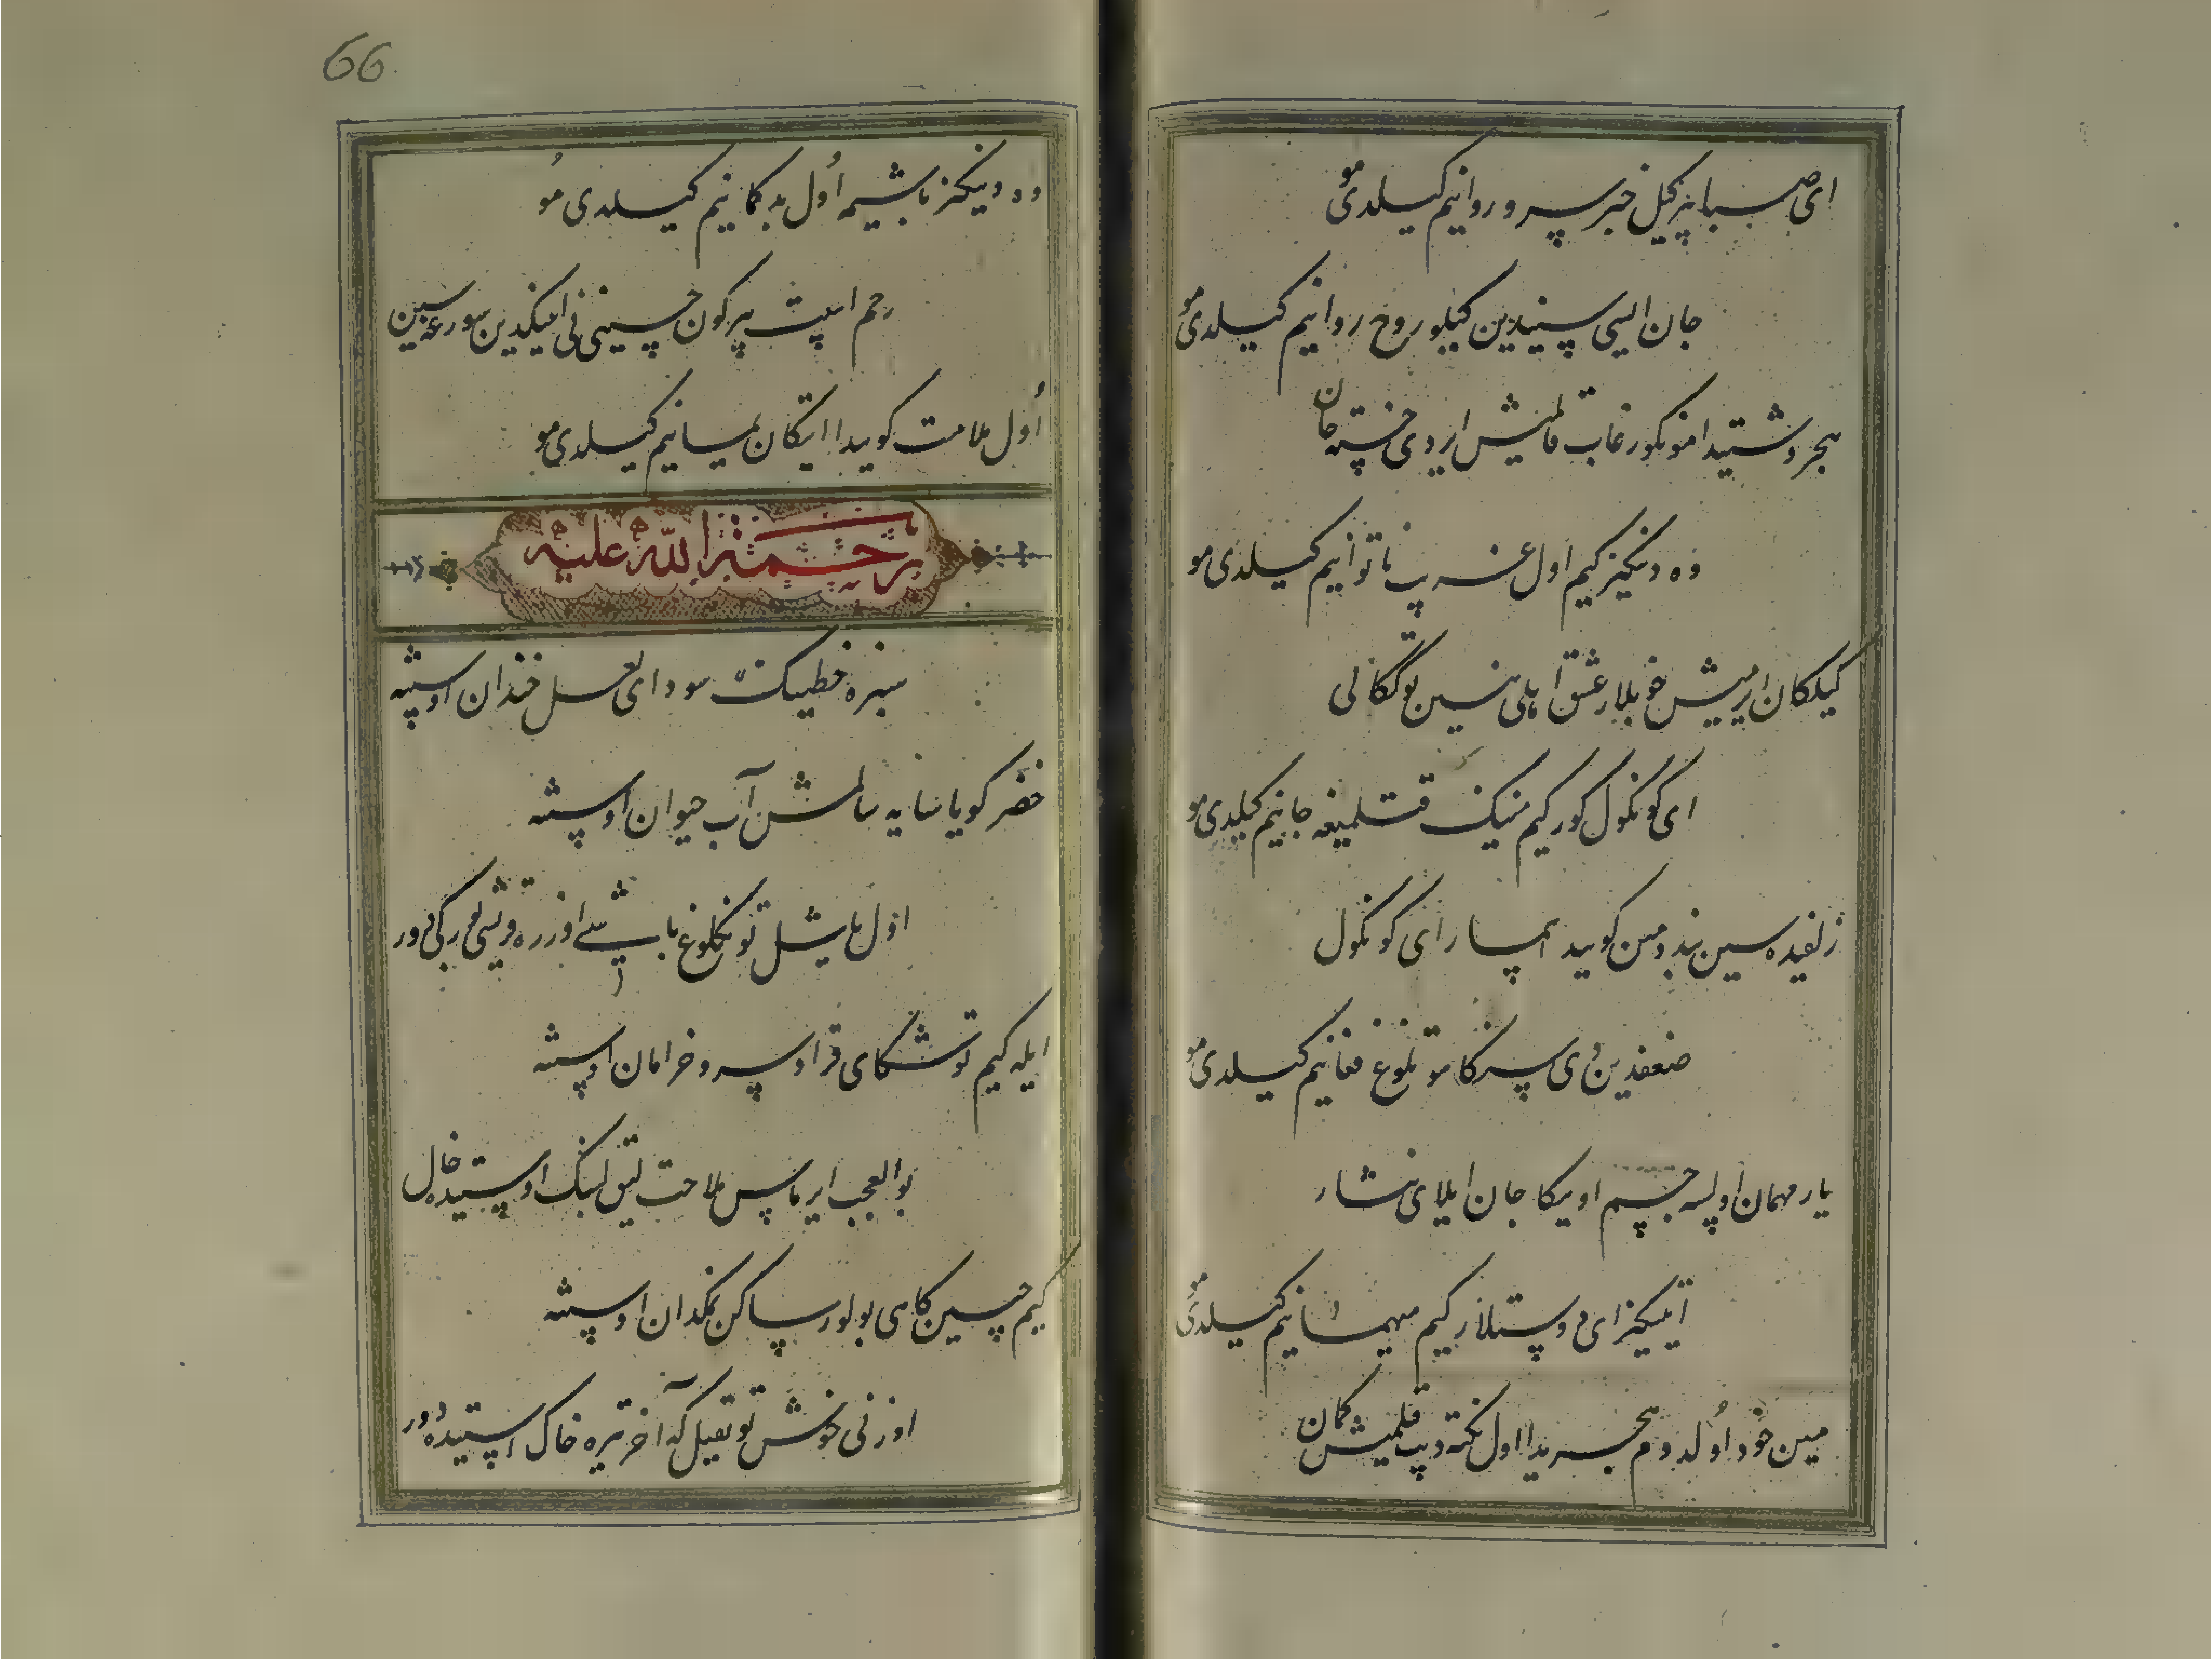 ای صبا بیرکیل خبر سرو روانیم کیلدی مو
جان ایسی سیندین کیلور روح روانیم کیلدی مو
هجر دشتیدا منونکور غاب قالمیش ایردی خسته جان
وه دینکیز کیم اول غریب ناتوانیم کیلدی مو
کیلکان ایرمیش خوبلار عشق اهلی نینک
ای کونکول کور کیم مینینک قتلیمغه جانیم کیلدی مو
زلفیده سین بند و مین کوییدا ای کونکول
ضعفدین سیزکا موتلوغ فغانیم کیلدی مو
یار مهمان اولسه جسم اویکا جان ایلای نثار
ایتینکیز ای دوستلار کیم میهمانیم کیلدی مو
مین خود اولدوم هجریدا اول نکته دیب قیلمیش کمان
وه دینکیز باشیمه اول بدکمانیم کیلدی مو
رحم ایت بیرکون حسینی نی ایتینکدین سورغه سین
اول ملامت کوییدا ایتکان یمانیم کیلدی مو
رحمة الله علیه
سبزه خطینک سودای لعل خندان اوسته
خضر کویا سایه سالمش آب حیوان اوسته
اول یاشیل تونلوغ باشی اوزره
ایله کیم توشکای قرا و سرو خرامان اوسته
بوالعجب ایرماس ملاحت لیق لبینک اوستیده خال
کیم چیبین کاهی بولور ساکن نمکدان اوسته
اوزنی خوش توتقیل که آخر تیره خاک استیده دور
66